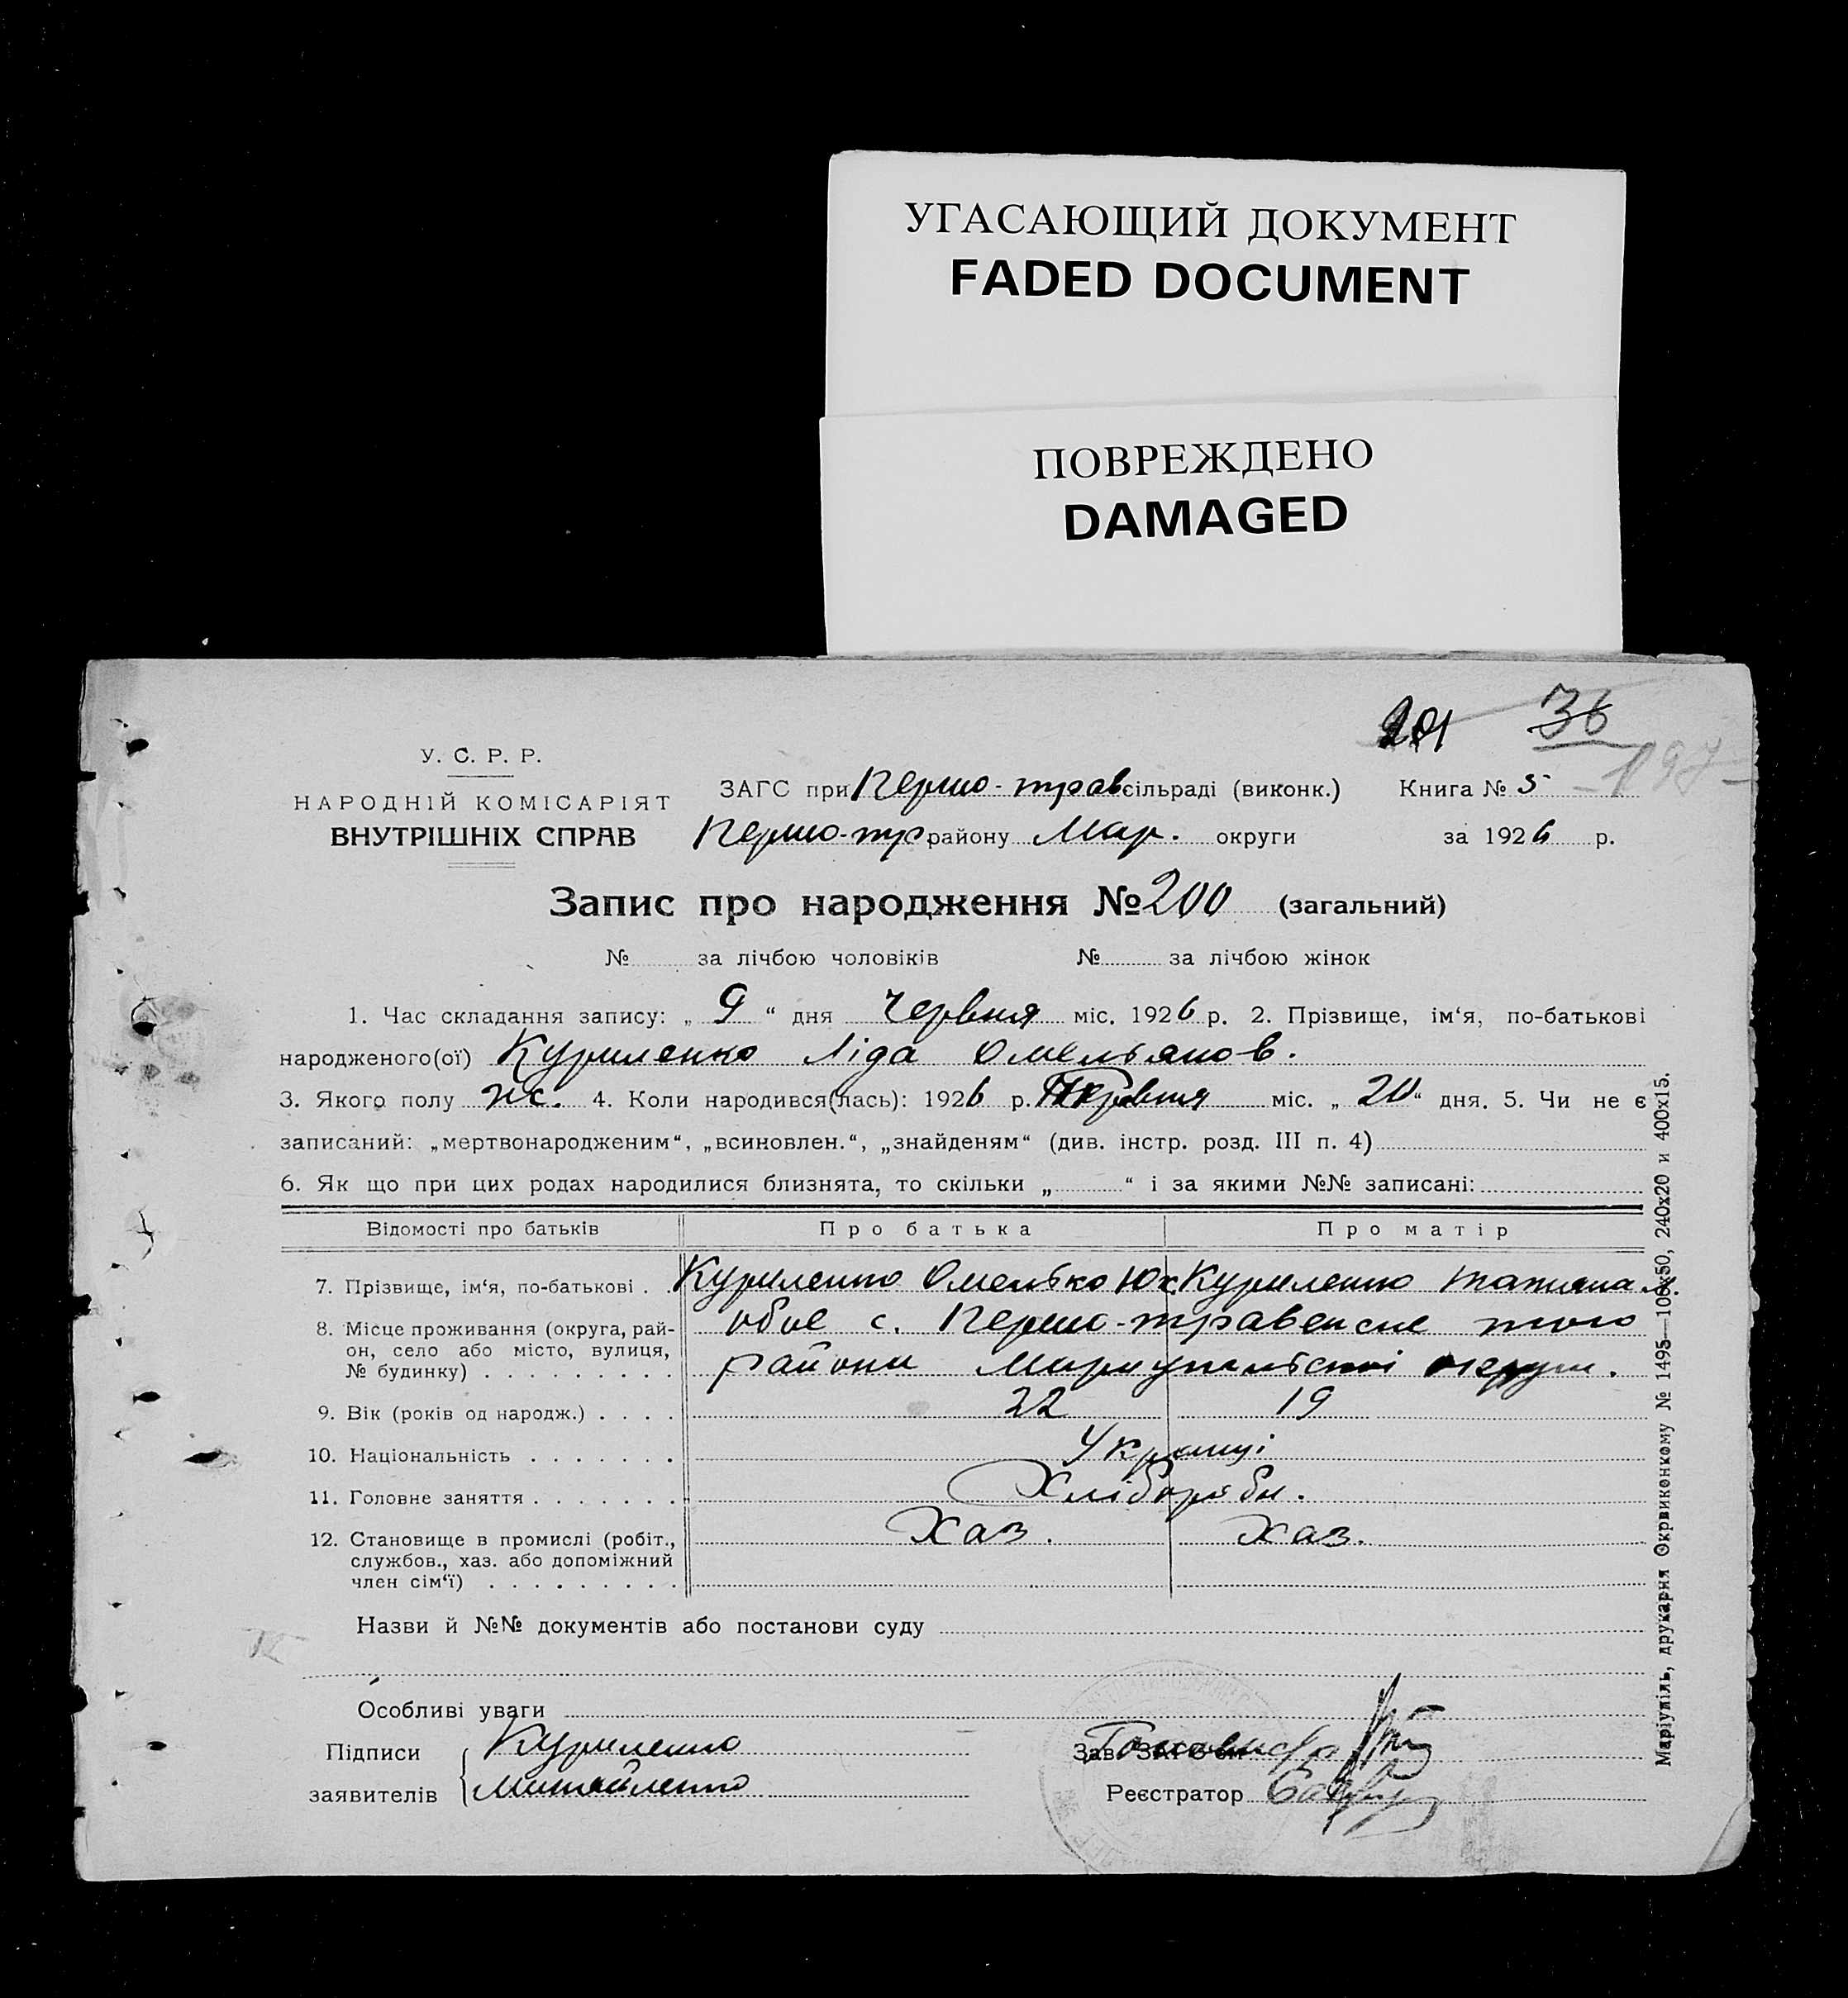 УГАСАЮЩИЙ ДОКУМЕНТ
FADED DOCUMENT
ПОВРЕЖДЕНО
DAMAGED
201 36
197
У. С. Р. Р.
НАРОДНІЙ КОМІСАРІЯТ
ВНУТРІШНІХ СПРАВ
ЗАГС при Першо-трав сільраді (виконк.) Книга № 5
Першо-тр. району Мар. округи за 1926 р.
Запис про народження № 200 (загальний)
№ за лічбою чоловіків № за лічбою жінок
1. Час складання запису: „ 9 “ дня Червня міс. 1926 р. 2. Прізвище, ім‘я, по-батькові
народженого(ої) Куриленко Ліда Омельянов.
3. Якого полу ж. 4. Коли народився(лась): 1926 р. міс. „ 20 “ дня. 5. Чи не є
записаний: „мертвонародженим“, „всиновлен.“, „знайденям“ (див. інстр. розд. III п. 4)
6. Як що при цих родах народилися близнята, то скільки „ “ і за якими №№ записані:
Відомості про батьків Про батька Про матір
7. Прізвище, ім‘я, по-батькові . . Куриленко Омелько Юх Куриленко Татияна
8. Місце проживання (округа, рай-
он, село або місто, вулиця,
№ будинку) . . . . . . . . .
обое с. Першо-травенсне того
района Мариупальскоі округи.
9. Вік (років од народж.) . . . . 22 19
10. Національність . . . . . . . Украинці
11. Головне заняття . . . . . . . Хлібороби.
12. Становище в промислі (робіт.,
службов., хаз. або допоміжний
член сім‘ї) . . . . . . . . .
Хаз. Хаз.
Назви й №№ документів або постанови суду
Особливі уваги
Підписи
заявителів
Куриленко
Михайленко
Зав. ЗАГС‘ом
Реєстратор
Маріупіль, друкарня Окрвиконкому № 1495—106х50, 240х20 и 400х15.